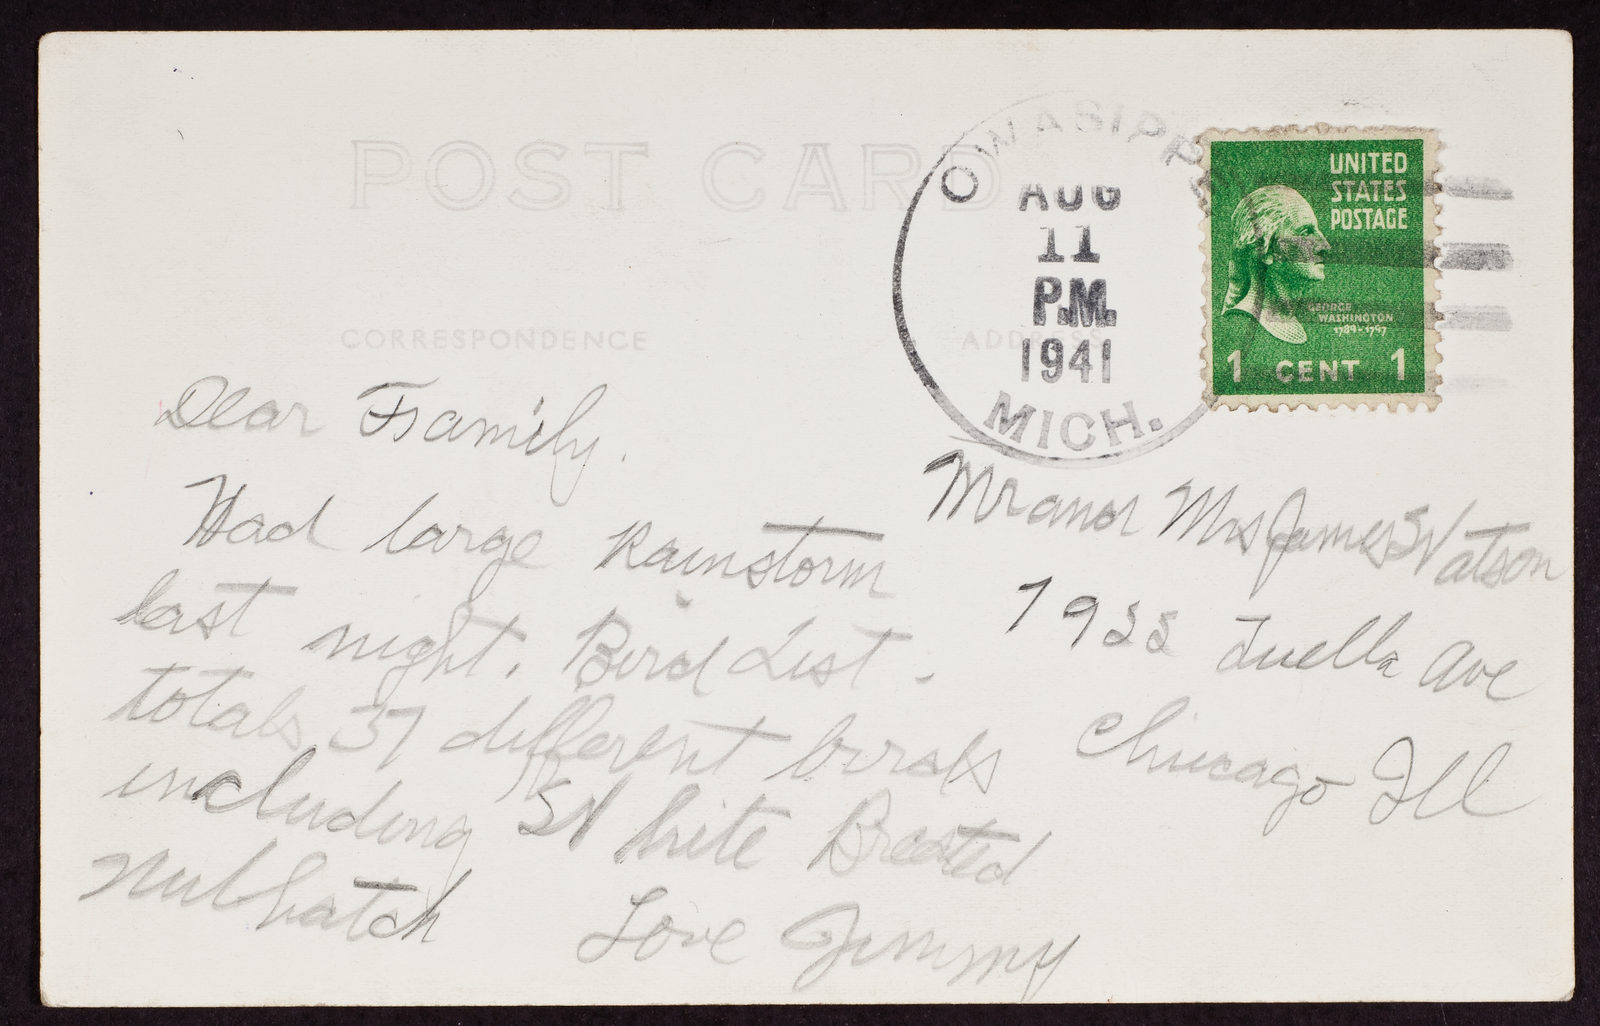 POST CARD
OWASIPPE
AUG
11
P.M.
1941
MICH.
UNITED
STATES
POSTAGE
GEORGE
WASHINGTON
1789-1797
1 CENT 1
CORRESPONDENCE
ADDRESS
Dear Family.
Had large Rainstorm
last night. Bird List.
totals 37 different birds
including White Breasted
Nuthatch
Love Jimmy
Mr and Mrs James Watson
7922 Luella Ave
Chicago Ill